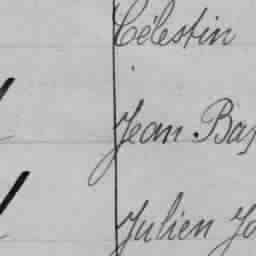 Célestin
Jean Bap
Julien Jo